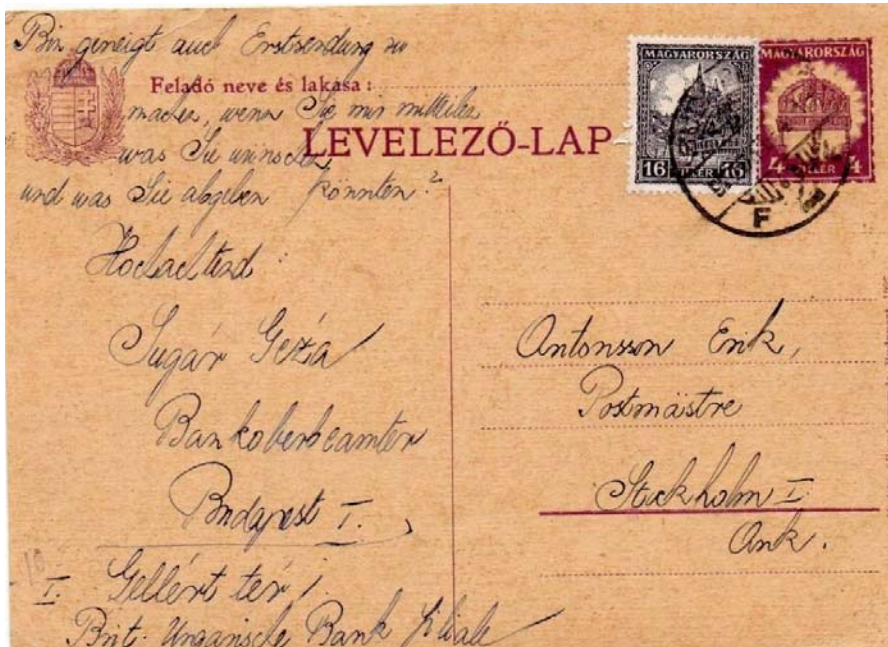 Bin geneigt auch Erstsendung zu
Feladó neve és lakása:
machen, wenn Sie mir mitteilen
was Sie wünschen
LEVELEZŐ-LAP
und was Sie abgeben könnten?
Hochachtend
Sugár Géza
Bankoberbeamter
Budapest I.
I. Gellért tér 1
Brit. Ungarische Bank Filiale
MAGYARORSZÁG
16 16
MAGYARORSZÁG
4 FILLÉR 4
F
Antonsson Erik,
Postmästre
Stockholm I.
Ank.
10